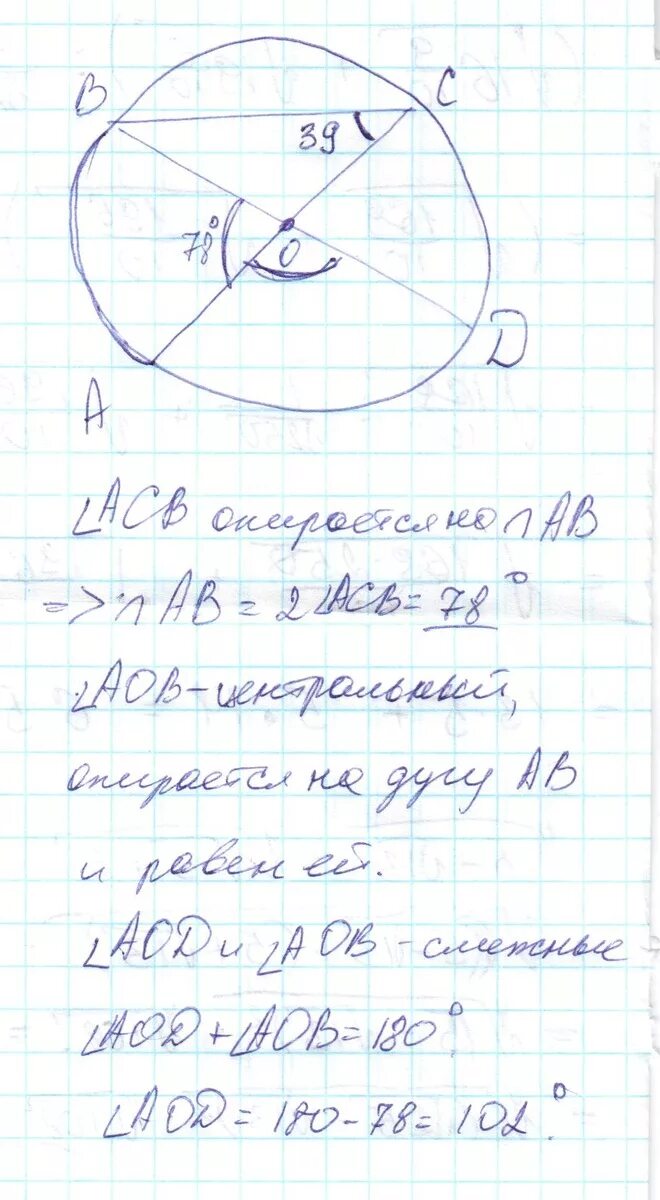 B
C
39
78°
O
D
A
∠ACB опирается на ∩AB
=> ∩AB = 2∠ACB = 78°
∠AOB - центральный,
опирается на дугу AB
и равен ей.
∠AOD и ∠AOB - смежные
∠AOD + ∠AOB = 180°.
∠AOD = 180 - 78 = 102°.